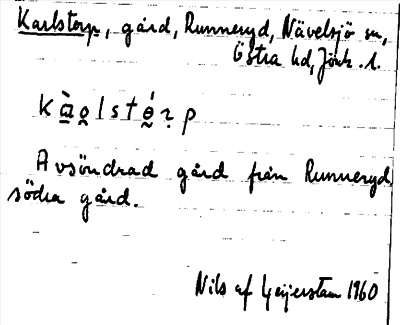 Karlstorp, gård, Runneryd, Nävelsjö sn,
Östra hd, Jönk. l.
Avsöndrad gård från Runneryd
södra gård.
Nils af Geijerstam 1960